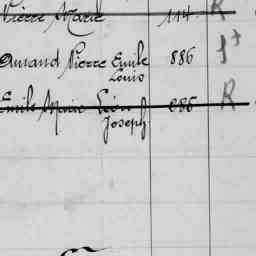 Pierre Marie 114 R
Amand Pierre Emile 886
Louis
Emile Marie Léon 886 R
Joseph